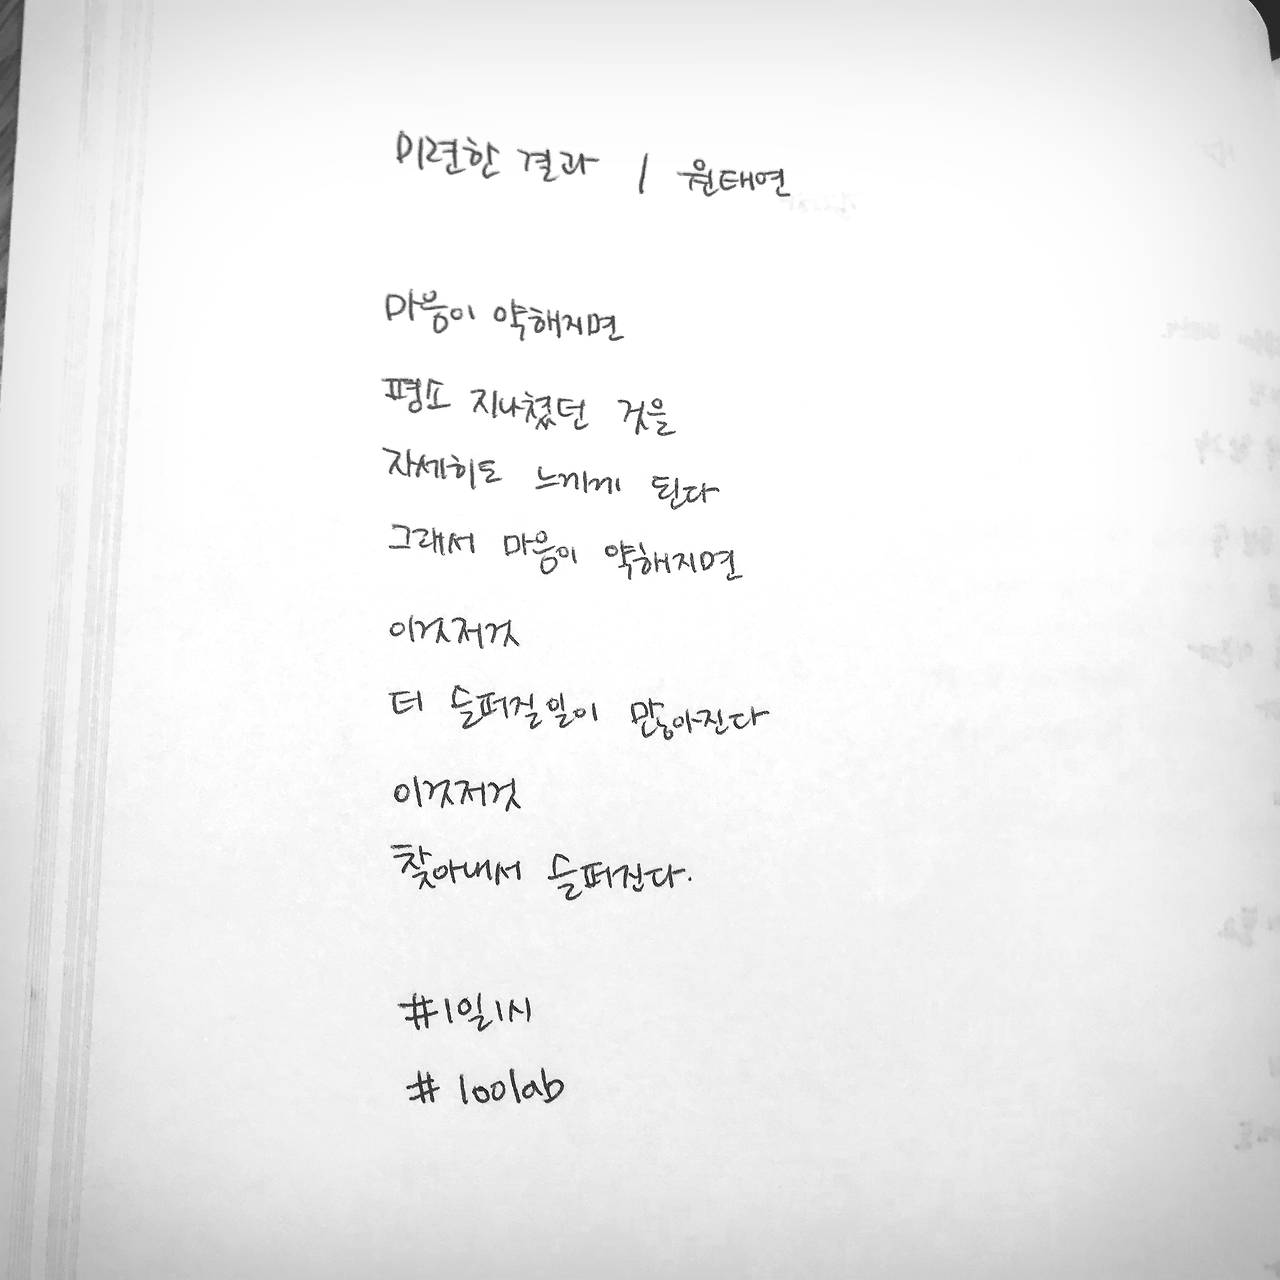 미련한 결과 / 원태연
마음이 약해지면
평소 지나쳤던 것을
자세히도 느끼게 된다
그래서 마음이 약해지면
이것저것
더 슬퍼질일이 많아진다
이것저것
찾아내서 슬퍼진다.
#1일1시
# 100lab